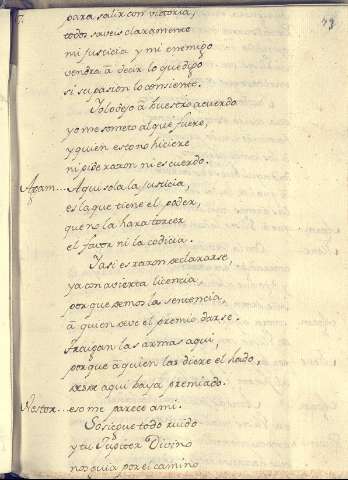 para salir con victoria,
79
todos saveis claramente
mi justicia y mi enemigo
vendra â decir lo que digo
si su pasion lo consiente.
Yo lo dejo â buestro acuerdo
yo me someto al que fuere,
y quien esto no hiciere
ni pide razon ni es cuerdo.
Agam... Aqui sola la justicia,
es la que tiene el poder,
que no la hara torcer
el favor ni la codicia.
Y asi es razon declararse,
ya con avierta licencia,
porque demos la sentencia,
â quien deve el premio darse.
traigan las armas aqui,
porque â quien las diere el hado,
desde aqui baya premiado.
Nestor... eso me parece ami.
Sosiegue todo ruido
y tu Jupiter Divino
nos guia por el camino